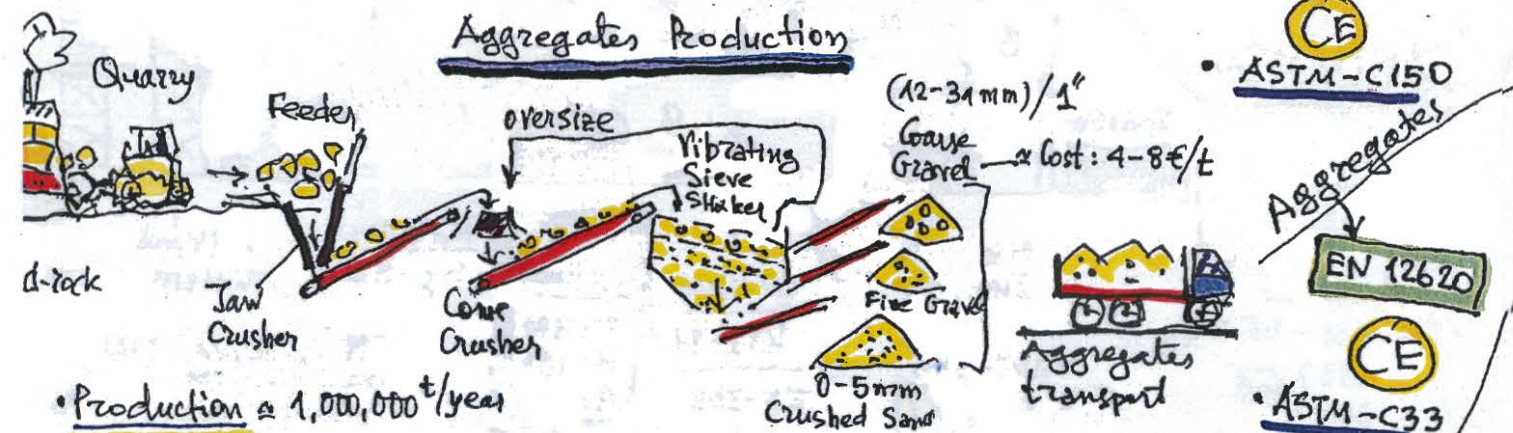 Aggregates Production
CE
• ASTM-C150
Quarry
Feeder
oversize
Vibrating
Sieve
Shaker
(12-31mm)/1"
Coarse
Gravel
≈ Cost: 4-8€/t
Aggregates
EN 12620
d-rock
Jaw
Crusher
Cone
Crusher
Fine Gravel
0-5mm
Crushed Sand
Aggregates
transport
CE
• ASTM-C33
• Production ≈ 1,000,000 t/year